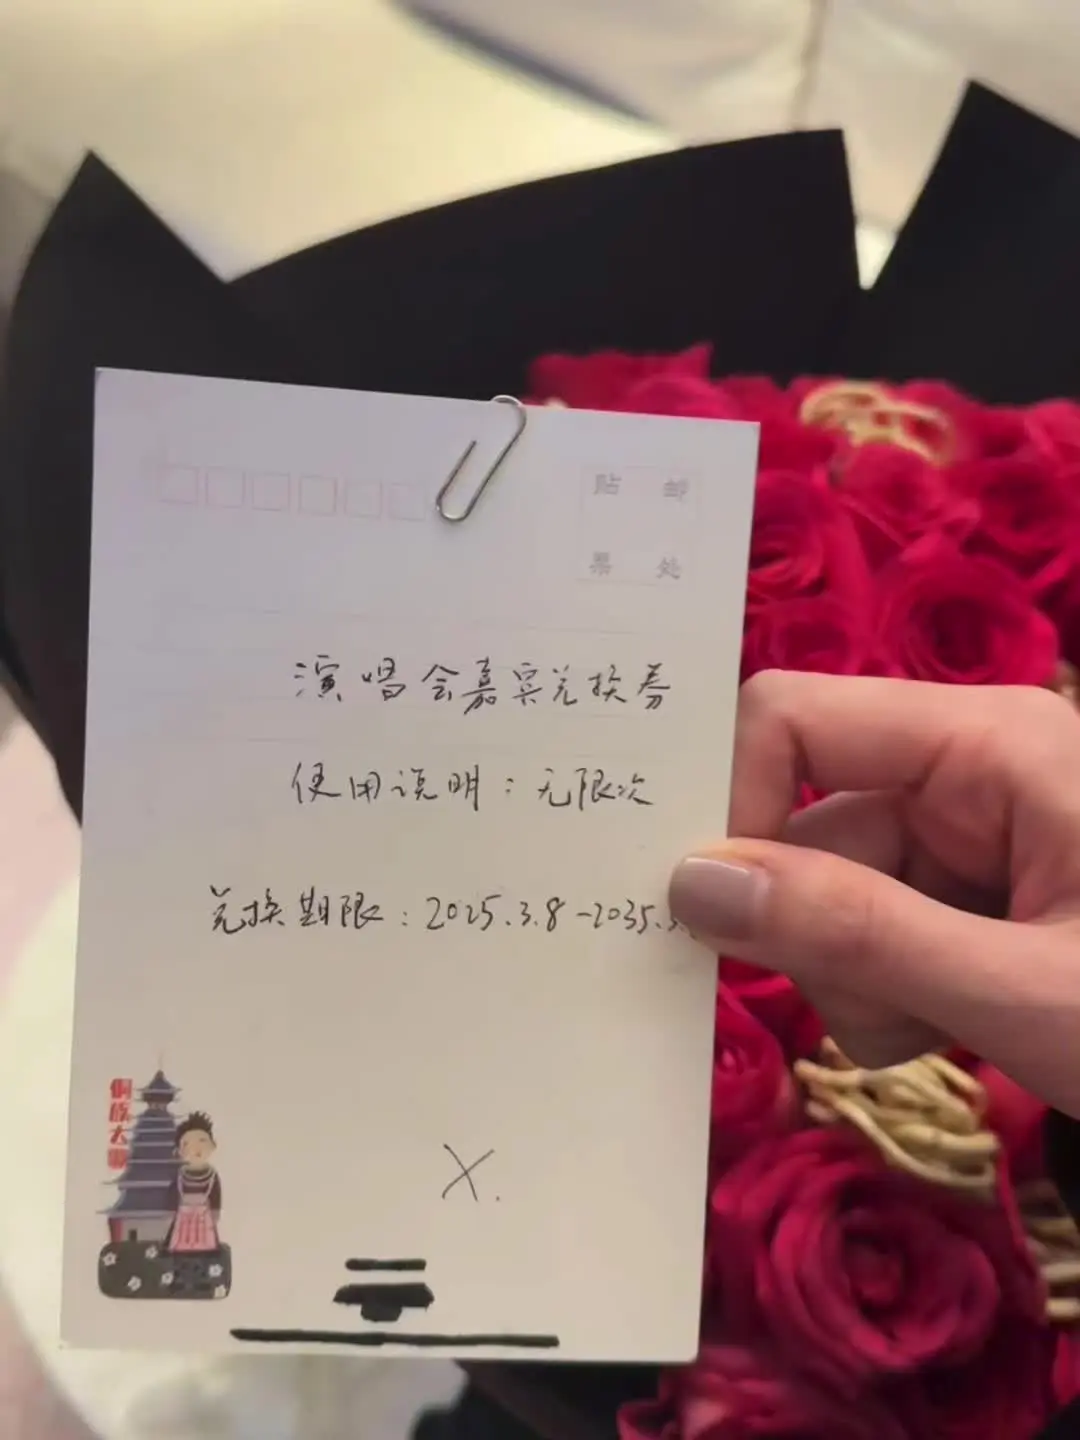 贴 邮
票 处
演唱会嘉宾兑换券
使用说明：无限次
兑换期限：2025.3.8-2035.3.
侗族大歌
X.